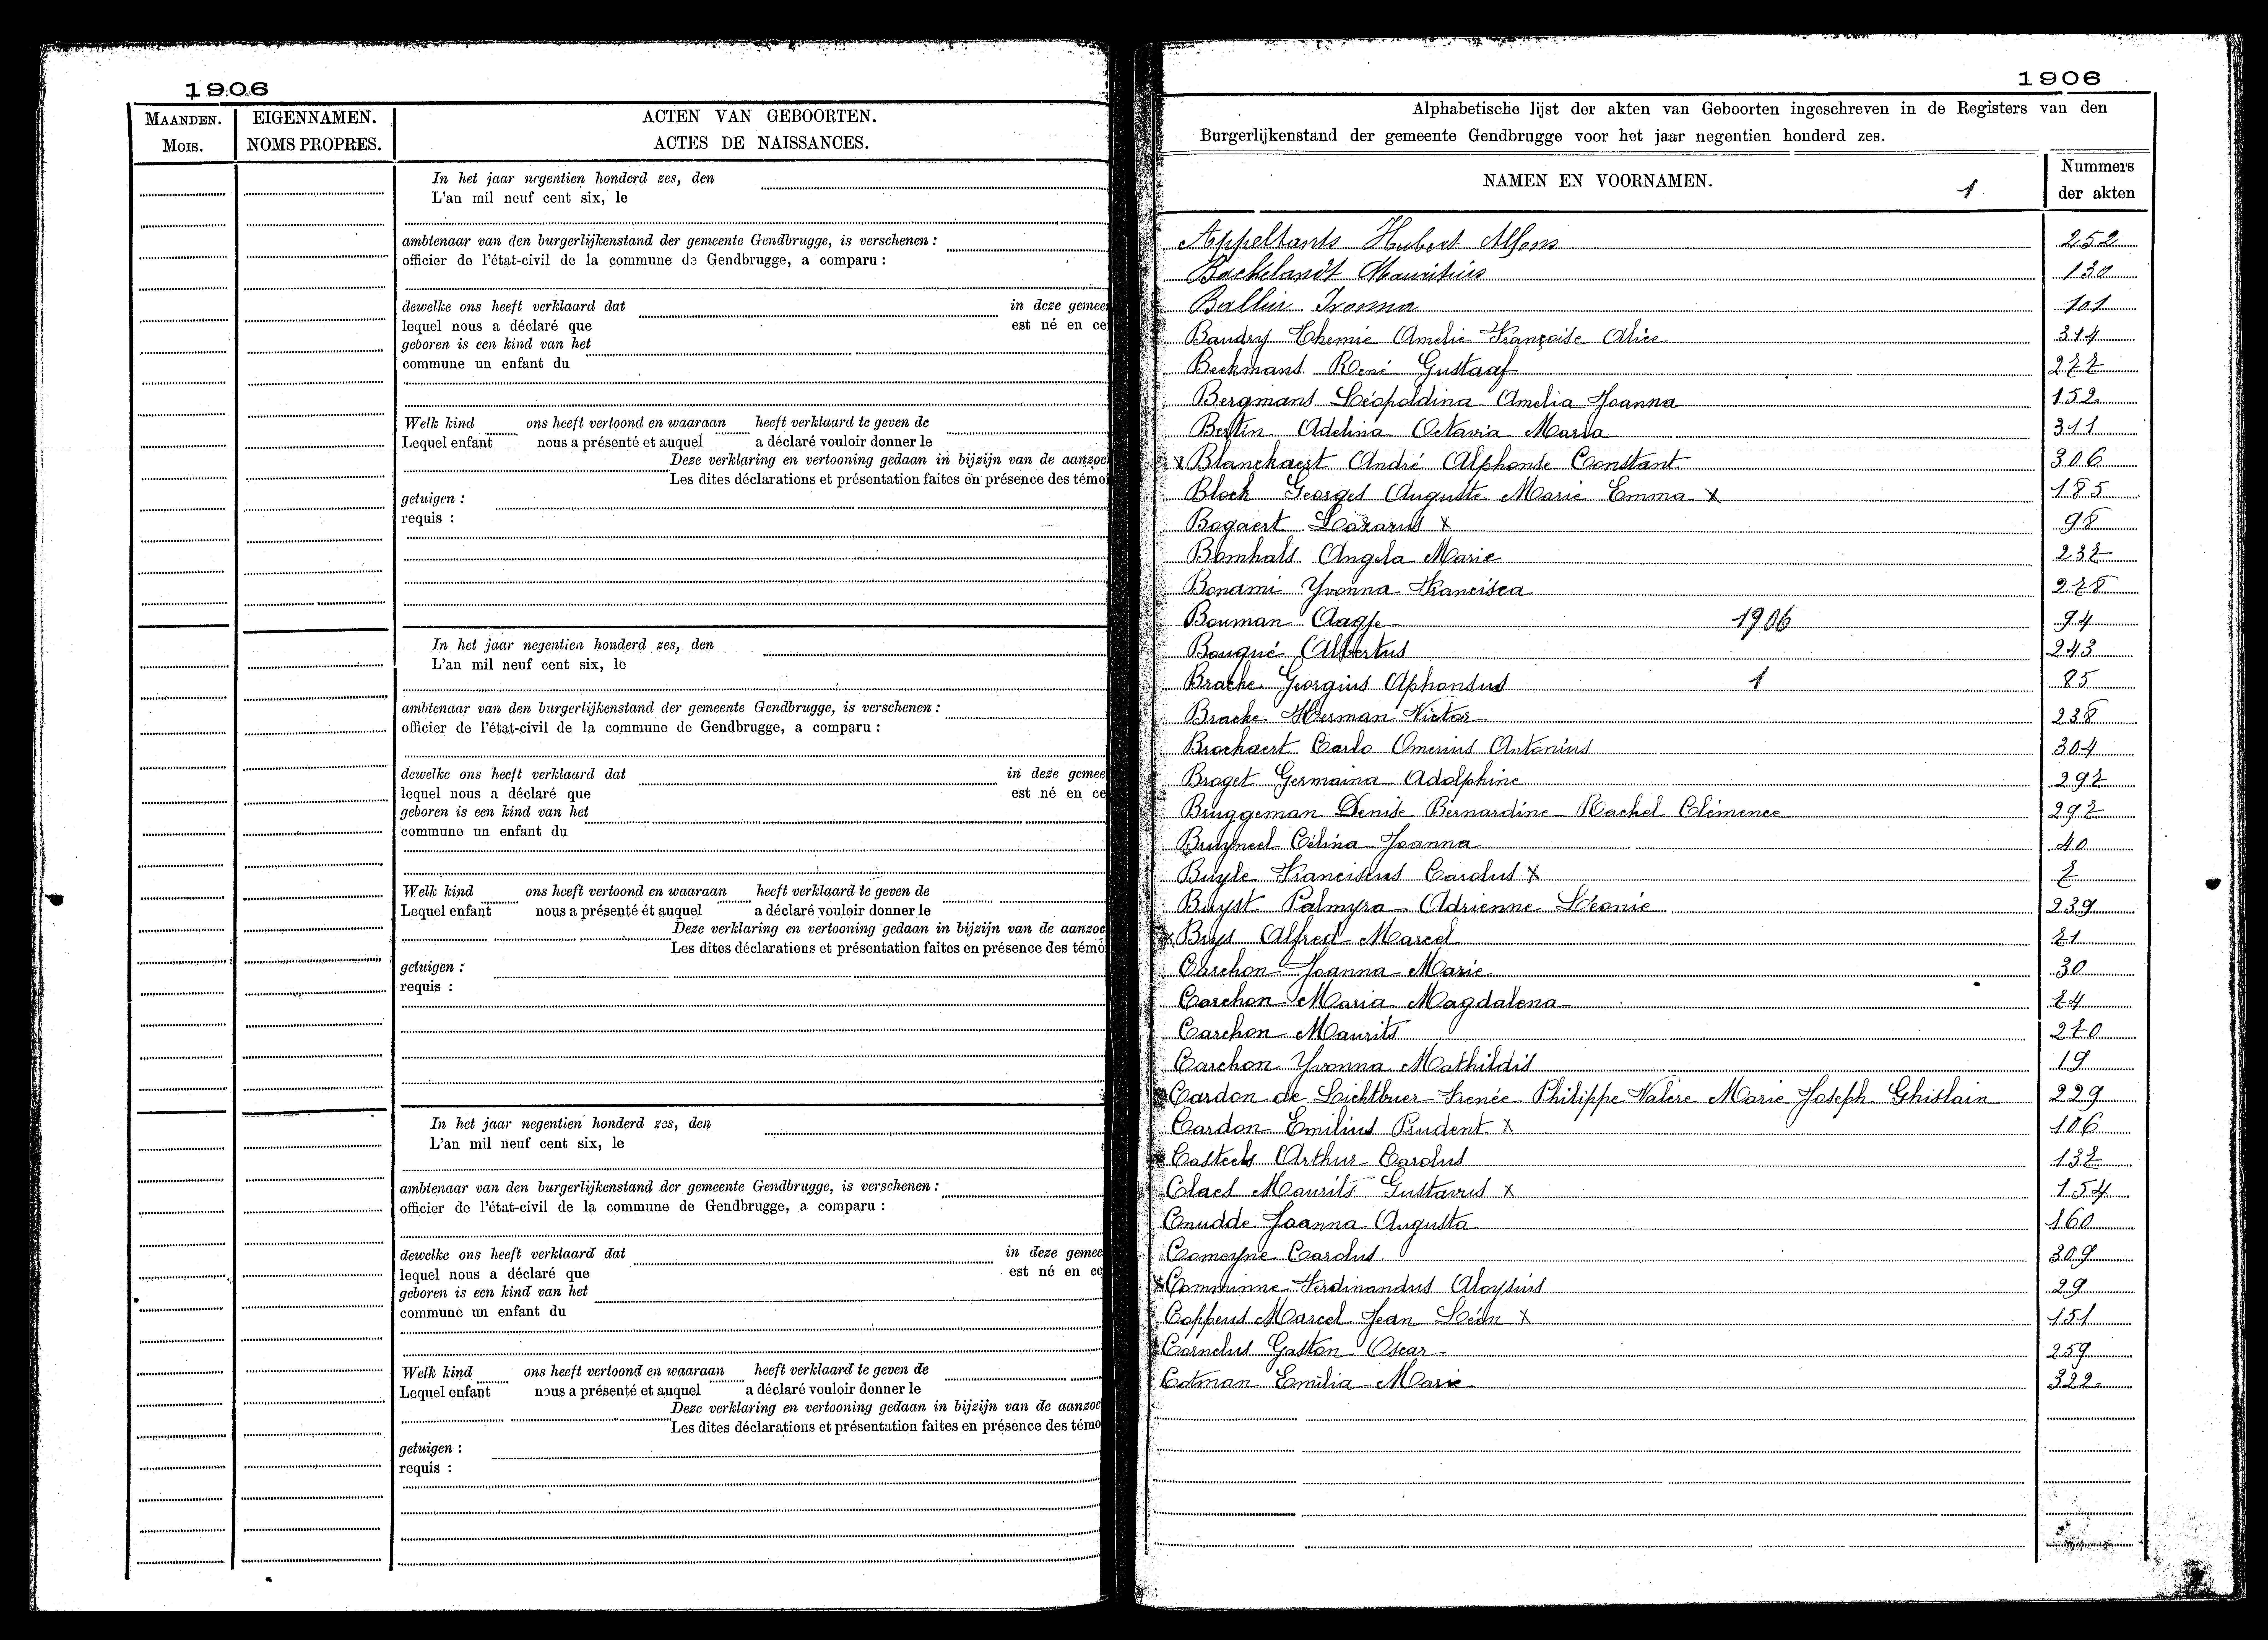 1906
MAANDEN. EIGENNAMEN. ACTEN VAN GEBOORTEN.
MOIS. NOMS PROPRES. ACTES DE NAISSANCES.
In het jaar negentien honderd zes, den
L'an mil neuf cent six, le
ambtenaar van den burgerlijkenstand der gemeente Gendbrugge, is verschenen :
officier de l'état-civil de la commune de Gendbrugge, a comparu :
dewelke ons heeft verklaard dat in deze gemee
lequel nous a déclaré que est né en ce
geboren is een kind van het
commune un enfant du
Welk kind ons heeft vertoond en waaraan heeft verklaard te geven de
Lequel enfant nous a présenté et auquel a déclaré vouloir donner le
Deze verklaring en vertooning gedaan in bijzijn van de aanzoc
Les dites déclarations et présentation faites en présence des témo
getuigen :
requis :
In het jaar negentien honderd zes, den
L'an mil neuf cent six, le
ambtenaar van den burgerlijkenstand der gemeente Gendbrugge, is verschenen :
officier de l'état-civil de la commune de Gendbrugge, a comparu :
dewelke ons heeft verklaard dat in deze gemee
lequel nous a déclaré que est né en ce
geboren is een kind van het
commune un enfant du
Welk kind ons heeft vertoond en waaraan heeft verklaard te geven de
Lequel enfant nous a présenté ét auquel a déclaré vouloir donner le
Deze verklaring en vertooning gedaan in bijzijn van de aanzoc
Les dites déclarations et présentation faites en présence des témo
getuigen :
requis :
In het jaar negentien honderd zes, den
L'an mil neuf cent six, le
ambtenaar van den burgerlijkenstand der gemeente Gendbrugge, is verschenen :
officier de l'état-civil de la commune de Gendbrugge, a comparu :
dewelke ons heeft verklaard dat in deze gemee
lequel nous a déclaré que est né en ce
geboren is een kind van het
commune un enfant du
Welk kind ons heeft vertoond en waaraan heeft verklaard te geven de
Lequel enfant nous a présenté et auquel a déclaré vouloir donner le
Deze verklaring en vertooning gedaan in bijzijn van de aanzoc
Les dites déclarations et présentation faites en présence des témo
getuigen :
requis :
1906
Alphabetische lijst der akten van Geboorten ingeschreven in de Registers van den
Burgerlijkenstand der gemeente Gendbrugge voor het jaar negentien honderd zes.
NAMEN EN VOORNAMEN. 1 Nummers der akten
Appeltants Hubert Alfons 252
Backelandt Mauritius 130
Ballin Ivonna 101
Baudry Themie Amelie Françoise Alice 314
Beekmans René Gustaaf 277
Bergmans Léopoldina Amelia Joanna 152
Bertin Adelina Octavia Maria 311
x Blanckaert André Alphonse Constant 306
Block Georges Auguste Marie Emma x 185
Bogaert Lazarus x 98
Bomhals Angela Marie 237
Bonami Yvonna Francisca 278
Bouman Aagje 1906 94
Bouqué Albertus 243
Bracke Georgius Aphonsus 1 85
Bracke Herman Victor 238
Brockaert Carlo Omerius Antonius 304
Broget Germaina Adolphine 297
Bruggeman Denise Bernardine Rachel Clémence 292
Bruyneel Célina Joanna 40
Buyle Franciscus Carolus x 7
Buyst Palmyra Adrienne Léonie 239
x Brys Alfred Marcel 71
Carchon Joanna Marie 30
Carchon Maria Magdalena 74
Carchon Maurits 270
Carchon Yvonna Mathildis 19
Cardon de Lichtbuer Irenée Philippe Valere Marie Joseph Ghislain 229
Cardon Emilius Prudent x 106
Casteels Arthur Carolus 137
Claes Maurits Gustavus x 154
Cnudde Joanna Augusta 160
Comeyne Carolus 309
x Comminne Ferdinandus Aloysius 29
Coppens Marcel Jean Léon x 151
Cornelus Gaston Oscar 259
Cotman Emilia Marie 322